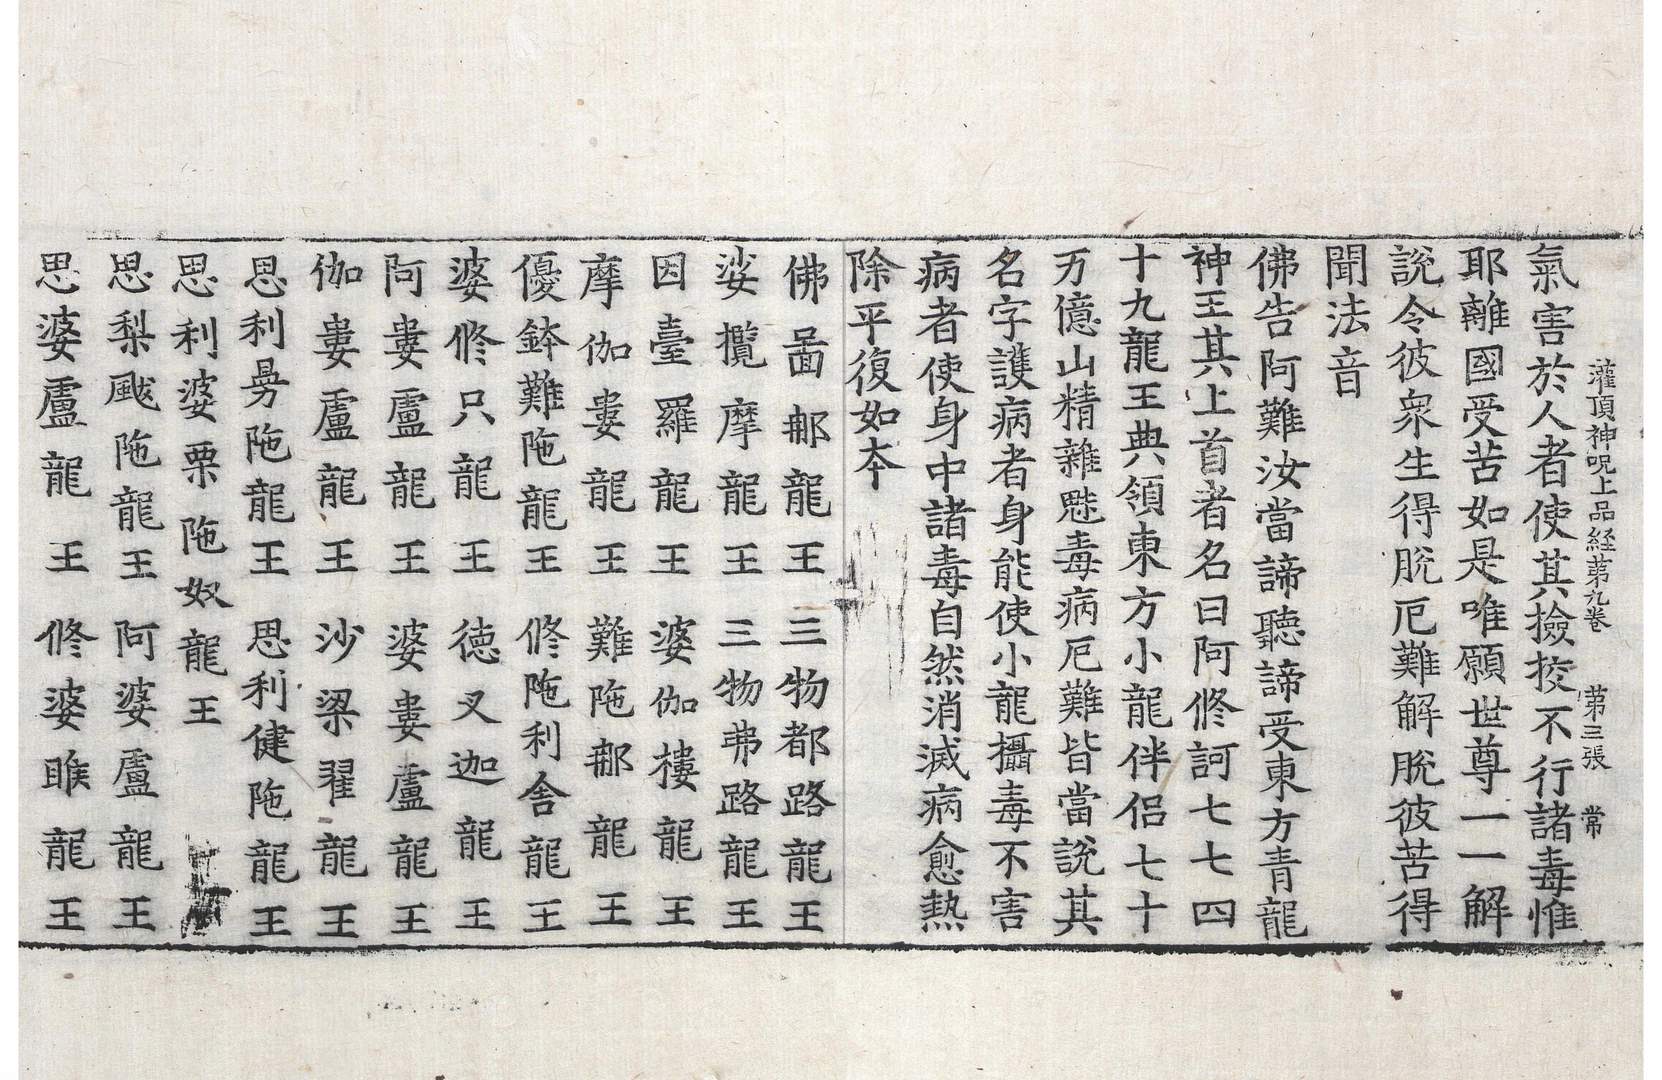 灌頂神呪上品経苐九卷 苐三張 常
氣害於人者使其撿挍不行諸毒惟
耶離國受苦如是唯願世尊一一解
說令彼衆生得脫厄難解脫彼苦得
聞法音
佛告阿難汝當諦聽諦受東方青龍
神王其上首者名曰阿修訶七七四
十九龍王典領東方小龍伴侣七十
万億山精雜魅毒病厄難皆當說其
名字護病者身能使小龍攝毒不害
病者使身中諸毒自然消滅病愈熱
除平復如本
佛啚䣋龍王 三物都路龍王
娑攬摩龍王 三物弗路龍王
因臺羅龍王 婆伽樓龍王
摩伽婁龍王 難陁䣋龍王
優鉢難陁龍王 修陁利舍龍王
婆修只龍王 德叉迦龍王
阿婁盧龍王 婆婁盧龍王
伽婁盧龍王 沙梁翟龍王
恩利昙陁龍王 恩利健陁龍王
恩利婆栗陁奴龍王
恩梨颰陁龍王 阿婆盧龍王
思婆盧龍王 修婆睺龍王